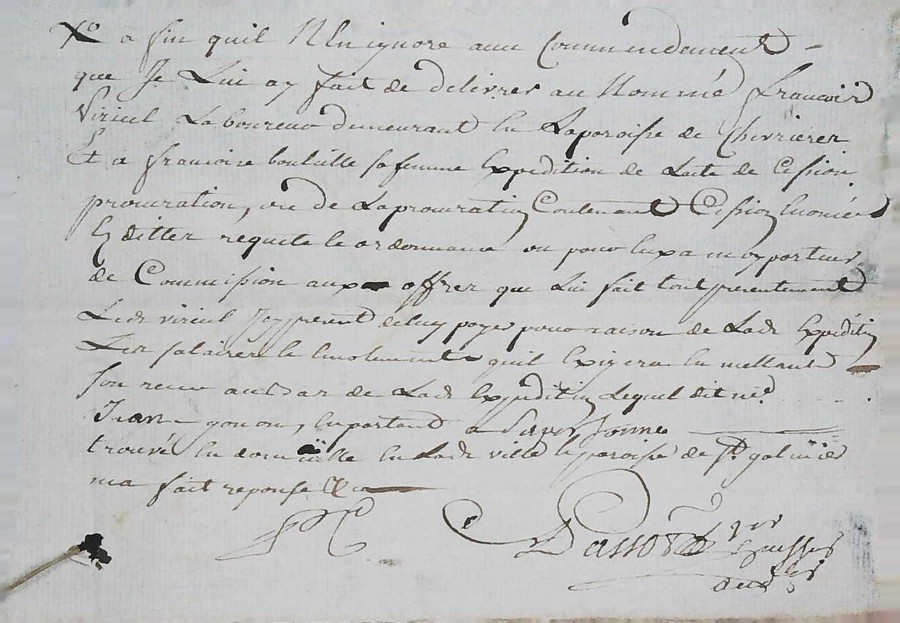 a fin quil N En ignore aun Commendement
que Je Lui ay fait de delivrer au Nommé francois
Viricel Laboureur demeurant En Laparoisse de Chevrieres
Et a francoise bouteille sa femme Expedition de Lacte de Cession
procuration, ou de Laprocuration Contenant Cession Enoncée
Es dittes requete le ordonnance ou pour luy a moy porteur
de Commission aux offres que Lui fait tout presentement
Ledt viricel Icy present de luy payer pour raison de Ladt Expedition
Les salaires le Emoluments quil Exigera En mettant
son recu au bas de Ladt Expedition Lequel dit me
Jean gonon, En parlant a Sa personne
trouvé En domicille En Ladt ville le paroisse de St galmier
ma fait reponse